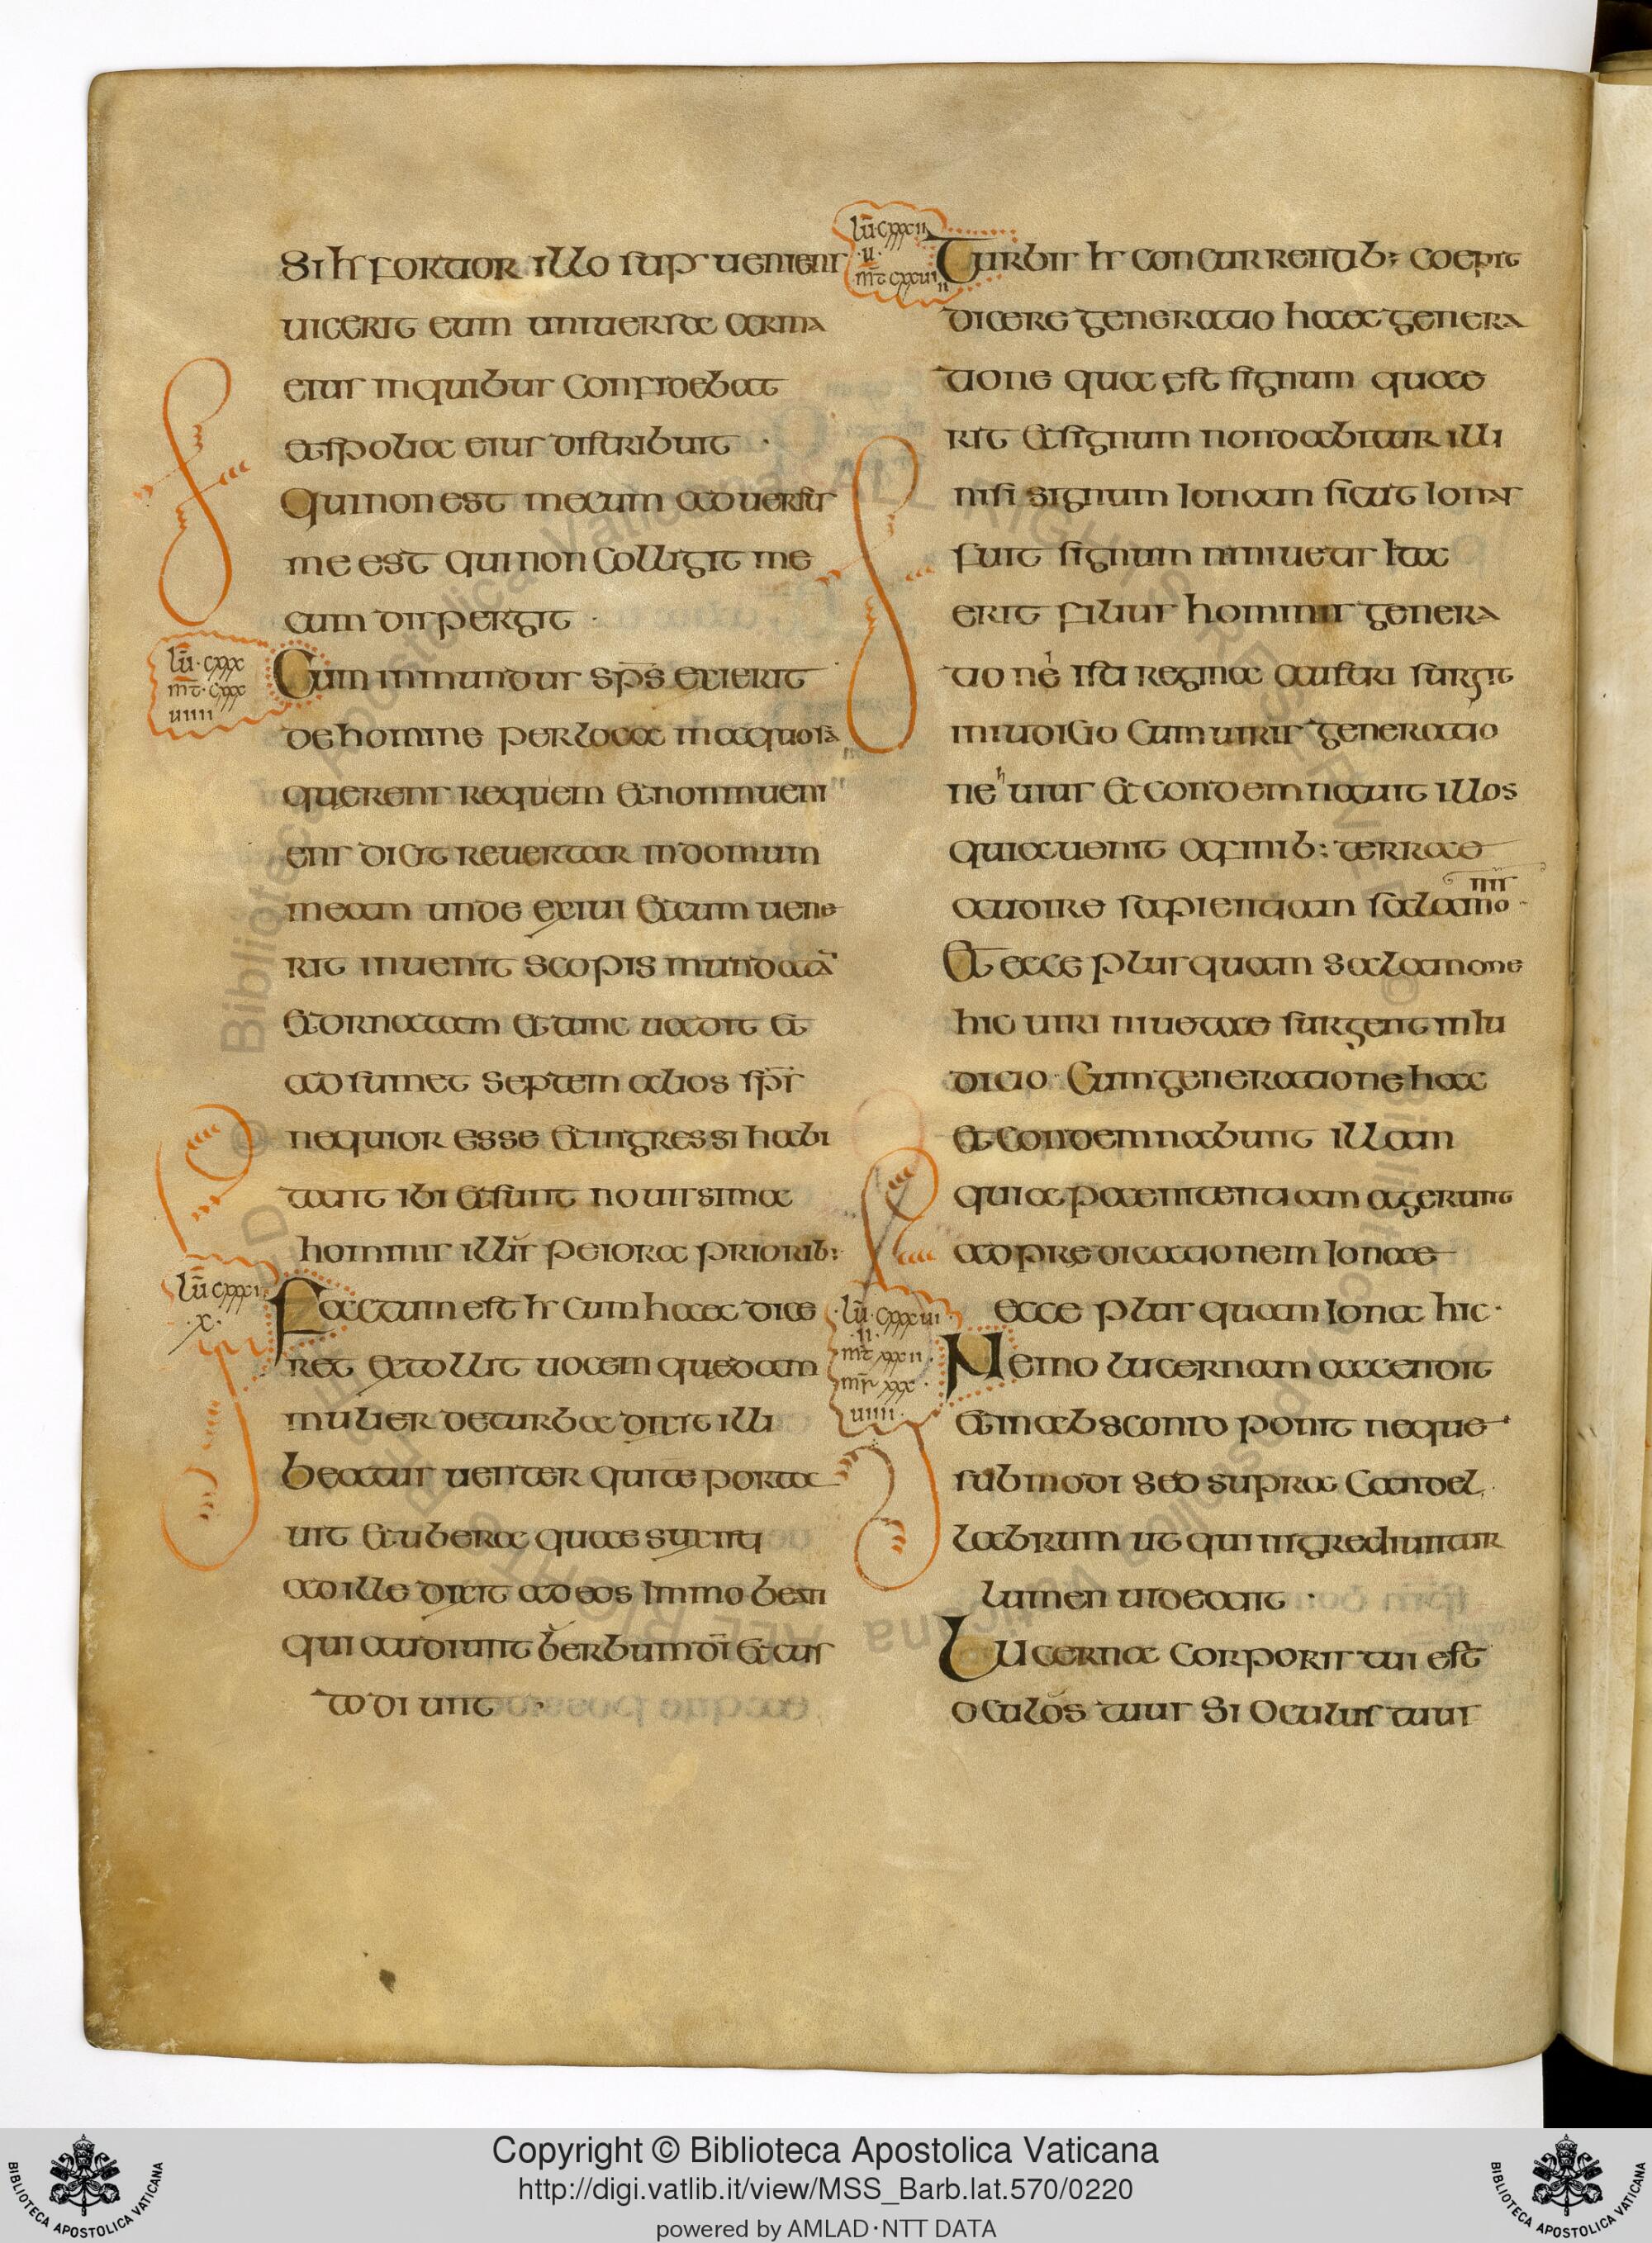 Si h̄ fortior illo sup̄ueniens
uicerit eum uniuersa arma
eius in quibus confidebat
et spolia eius distribuit ·
Qui non est mecum aduersus
me est qui non colligit me
cum dispergit ·
lū · cxxx
mt̄ · cxxx
uiiii
Cum inmundus sp̄s exierit
de homine per loca inaquosa
querens requiem et non inueni
ens dicit reuertar in domum
meam unde exiui et cum uene
rit inuenit scopis mundatā
et ornatam et tunc uadit et
adsumet septem alios sp̄s
nequior esse et ingressi habi
tant ibi et sunt nouissima
hominis illius peiora priorib:
lū cxxxi
·x·
Factum est h̄ cum haec dice
ret et tollit uocem quedam
mulier de turba dixit illi
beatus uenter qui te porta
uit et ubera quae suxisti
ad ille dixit ad eos Immo beati
qui audiunt uerbum dī et cus
todiunt ·
lū cxxxii
·u·
mt̄ cxxuiii
Turbis h̄ concurrentib: coepit
dicere generatio haec genera
tione qua est signum quae
rit et signum non dabitur illi
nisi signum Ionan sicut Ionas
fuit signum niniuetis Ita
erit filius hominis genera
tione Isti regina austri surgit
in iudicio cum uiris generatio
ne huius et condemnauit illos
quia uenit a finib: terrae
audire sapientiam salamonis
Et ecce plus quam salamone
hic uiri niuetae surgent in Iu
dicio Cum generatione hac
et condemnabunt illam
quia paenitentiam agerunt
ad predicationem Ionae
ecce plus quam Iona hic ·
lū · cxxxiii
·ii·
mt̄ xxxii ·
mr̄ xxx ·
uiiii ·
Nemo lucernam accendit
et in absconso ponit neque
sub modi sed supra candel
labrum ut qui ingrediuntur
lumen uideant ·
Lucerna corporis tui est
oculos tuus Si Oculus tuus
Copyright © Biblioteca Apostolica Vaticana
http://digi.vatlib.it/view/MSS_Barb.lat.570/0220
powered by AMLAD·NTT DATA